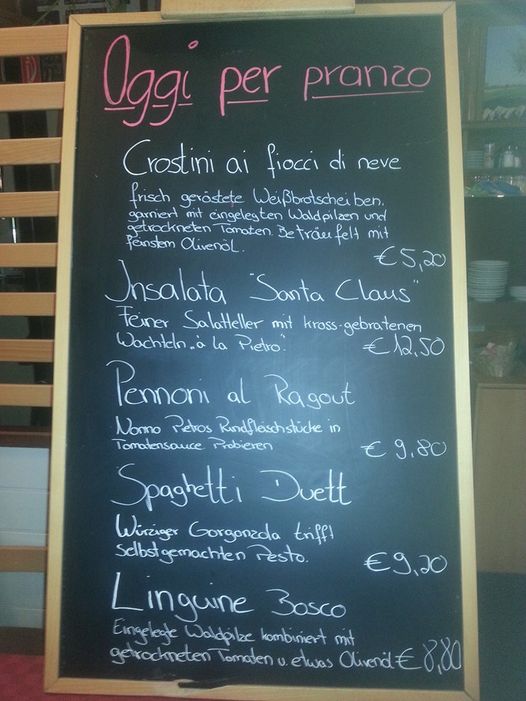 Oggi per pranzo
Crostini ai fiocci di neve
frisch geröstete Weißbrotscheiben,
garniert mit eingelegten Waldpilzen und
getrockneten Tomaten. Beträufelt mit
feinstem Olivenöl.
€ 5,20
Insalata "Santa Claus"
Feiner Salatteller mit kross-gebratenen
Wachteln „à la Pietro". € 12,50
Pennoni al Ragout
Nonno Pietros Rindfleischstücke in
Tomatensauce. Probieren € 9,80
Spaghetti Duett
Würziger Gorgonzola trifft
selbstgemachten Pesto. € 9,20
Linguine Bosco
Eingelegte Waldpilze kombiniert mit
getrockneten Tomaten u. etwas Olivenöl € 8,80